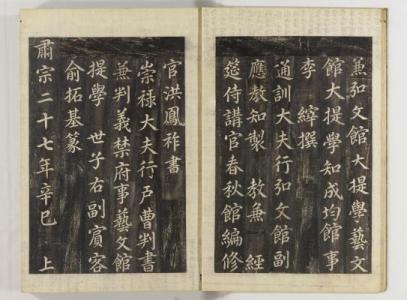 兼弘文館大提學藝文
館大提學知成均館事
李 縡撰
通訓大夫行弘文館副
應敎知製 敎兼 經
筵侍講官春秋館編修
官洪鳳祚書
崇祿大夫行戶曹判書
兼判義禁府事藝文館
提學 世子右副賓客
兪拓基篆
肅宗二十七年辛巳 上